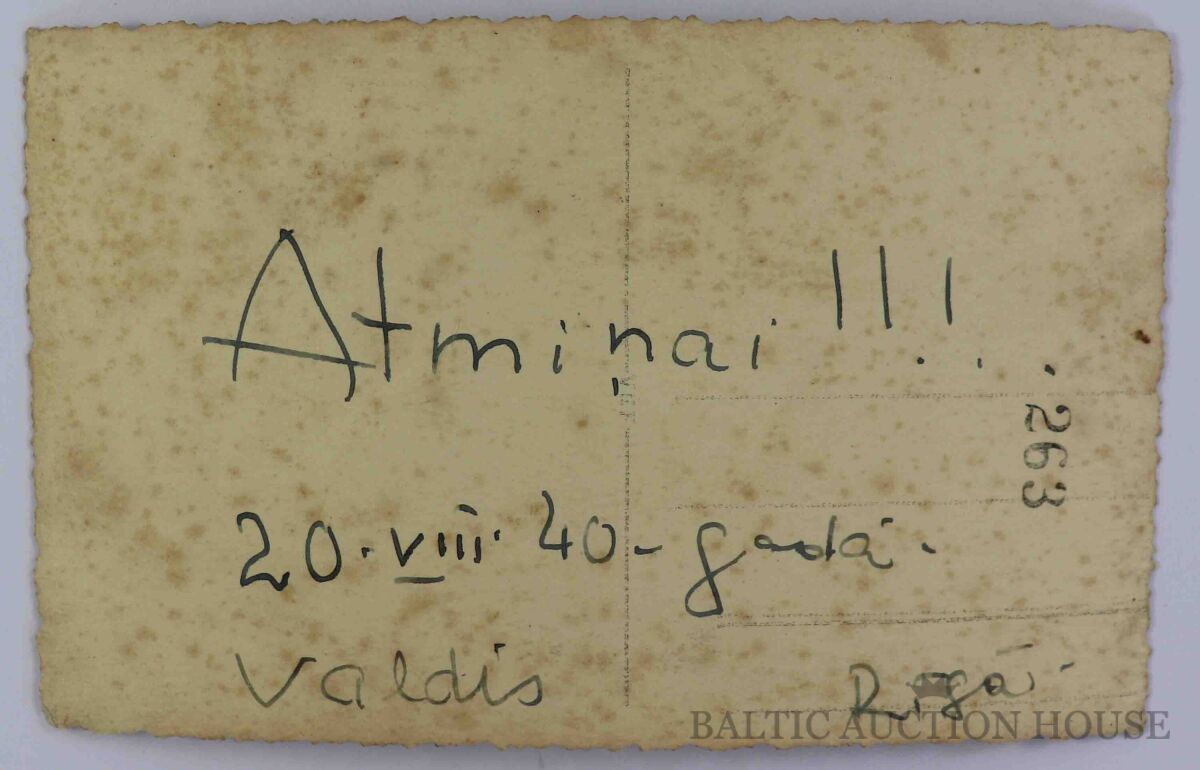 Atmiņai !!!
263
20. VIII. 40. gadā.
Valdis Rīgā.
BALTIC AUCTION HOUSE